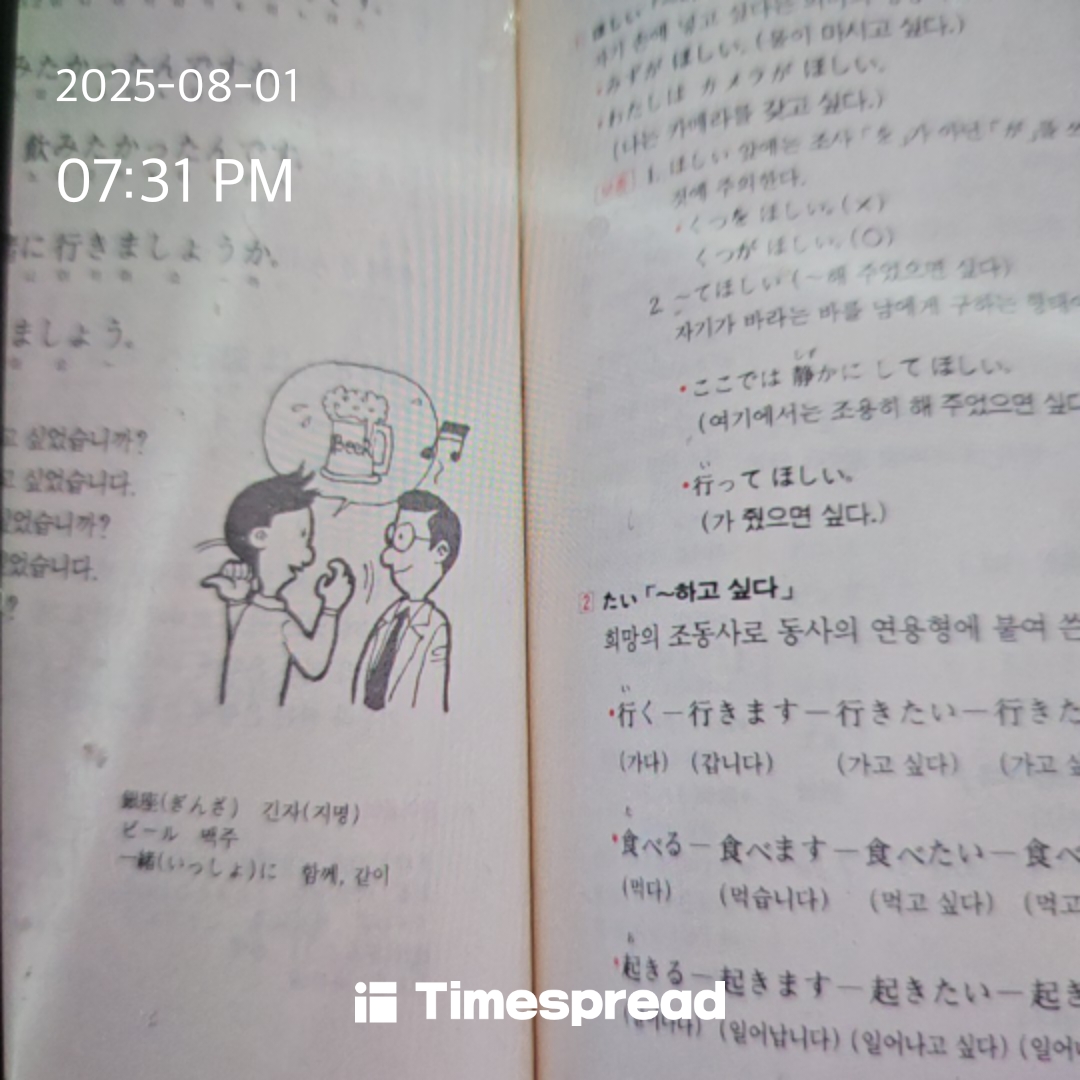 2025-08-01
07:31 PM
みたかったんですか。
飲みたかったんです。
に行きましょうか。
ましょう。
고 싶었습니까?
고 싶었습니다.
었습니까?
었습니다.
BEER
銀座(ぎんざ) 긴자(지명)
ビール 맥주
一緒(いっしょ)に 함께, 같이
자기 손에 넣고 싶다는
・みずが ほしい。(물이 마시고 싶다.)
・わたしは カメラが ほしい。
(나는 카메라를 갖고 싶다.)
1. ほしい 앞에는 조사「を」가 아닌「が」를
것에 주의한다.
・くつを ほしい。(×)
くつが ほしい。(○)
2. ~てほしい(~해 주었으면 싶다)
자기가 바라는 바를 남에게 구하는 형태
しず
・ここでは 静かに して ほしい。
(여기에서는 조용히 해 주었으면 싶다
い
・行って ほしい。
(가 줬으면 싶다.)
2 たい「~하고 싶다」
희망의 조동사로 동사의 연용형에 붙여 쓴
い
・行く－行きます－行きたい－行きた
(가다) (갑니다) (가고 싶다) (가고 싶
た
・食べる－食べます－食べたい－食べ
(먹다) (먹습니다) (먹고 싶다) (먹고
お
・起きる－起きます－起きたい－起き
(일어나다) (일어납니다) (일어나고 싶다) (일어
Timespread